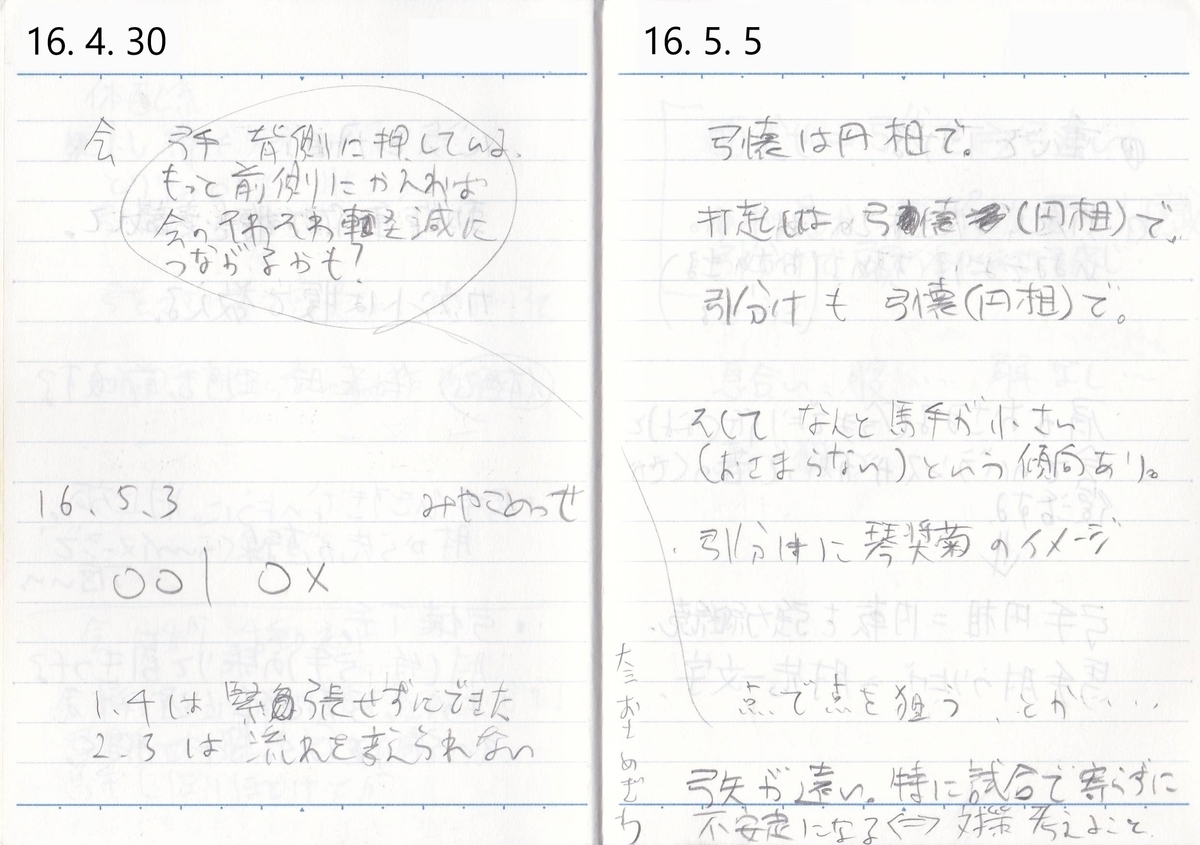 16. 4. 30
会 弓手 背側に押している。
もっと前側にかえれば
会のそわそわ軽減に
つながるかも?
16.5.3 みやこめっせ
○○| ○×
1.4は 緊張せずにできた
2.3は 流れを変えられない
16. 5. 5
弓懐は円相で。
打起しは 弓懐(円相)で。
引分けも 弓懐(円相)で。
そして なんと馬手が小さい
(おさまらない)という傾向あり。
・引分けに琴奨菊のイメージ
点で点を狙う、とか....
大三 おせ めざせ
弓矢が遠い。特に試合で寄らずに
不安定になる⇔対策 考えよこと